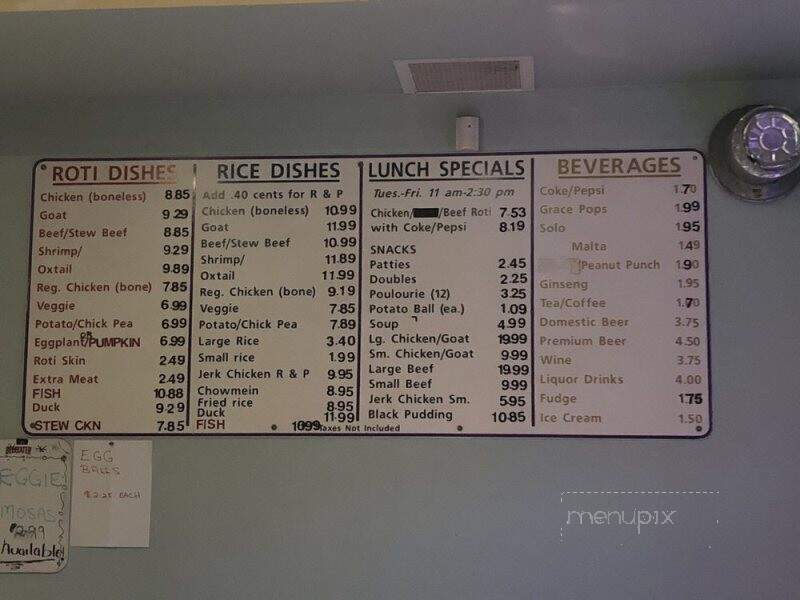 ROTI DISHES
Chicken (boneless) 8.85
Goat 9.29
Beef/Stew Beef 8.85
Shrimp/ 9.29
Oxtail 9.89
Reg. Chicken (bone) 7.85
Veggie 6.99
Potato/Chick Pea 6.99
Eggplant OR /PUMPKIN 6.99
Roti Skin 2.49
Extra Meat 2.49
FISH 10.88
Duck 9.29
STEW CKN 7.85
RICE DISHES
Add .40 cents for R & P
Chicken (boneless) 10.99
Goat 11.99
Beef/Stew Beef 10.99
Shrimp/ 11.89
Oxtail 11.99
Reg. Chicken (bone) 9.19
Veggie 7.85
Potato/Chick Pea 7.89
Large Rice 3.40
Small rice 1.99
Jerk Chicken R & P 9.95
Chowmein 8.95
Fried rice 8.95
Duck 11.99
FISH 10.99
Taxes Not Included
LUNCH SPECIALS
Tues.-Fri. 11 am-2:30 pm
Chicken/ /Beef Roti 7.53
with Coke/Pepsi 8.19
SNACKS
Patties 2.45
Doubles 2.25
Poulourie (12) 3.25
Potato Ball (ea.) 1.09
Soup 4.99
Lg. Chicken/Goat 19.99
Sm. Chicken/Goat 9.99
Large Beef 19.99
Small Beef 9.99
Jerk Chicken Sm. 5.95
Black Pudding 10.85
BEVERAGES
Coke/Pepsi 1.70
Grace Pops 1.99
Solo 1.95
Malta 1.49
/Peanut Punch 1.90
Ginseng 1.95
Tea/Coffee 1.70
Domestic Beer 3.75
Premium Beer 4.50
Wine 3.75
Liquor Drinks 4.00
Fudge 1.75
Ice Cream 1.50
EGG
BALLS
$2.25 EACH
EGGIE
MOSAS
Available
menupix